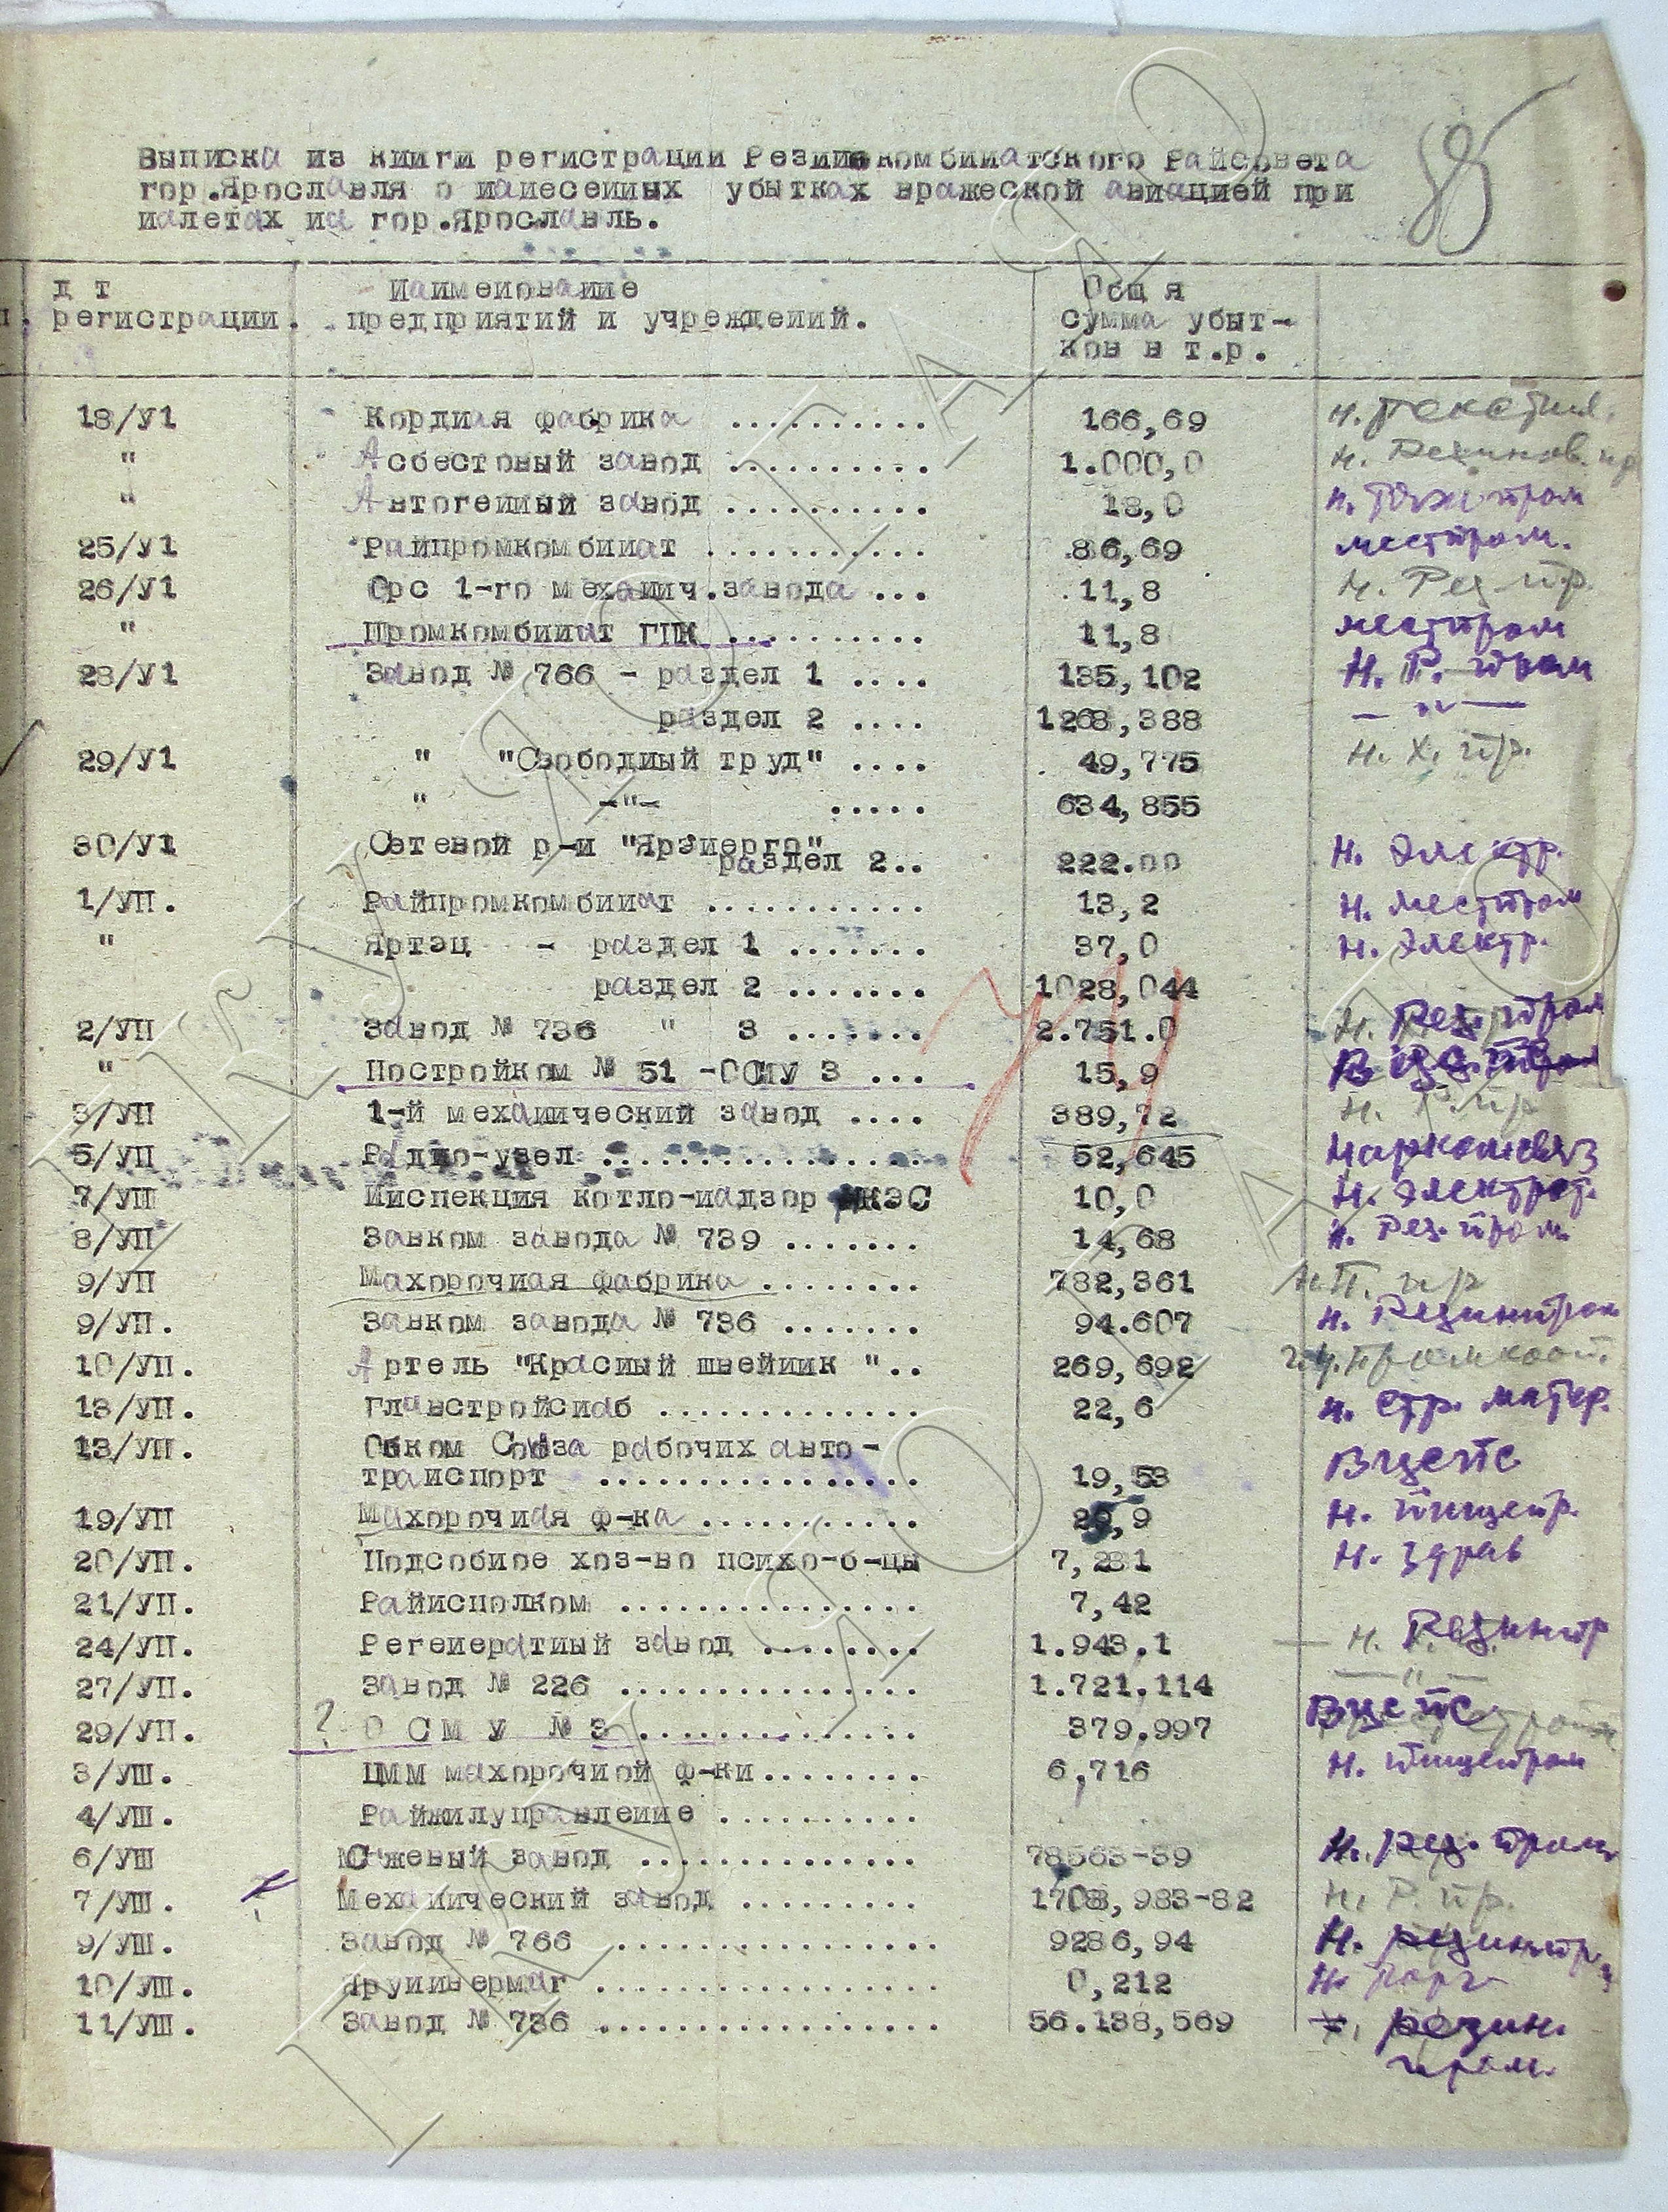 85
Выписка из книги регистрации Резинокомбинатского Райсовета
гор.Ярославля о нанесенных убытках вражеской авиацией при
налетах на гор.Ярославль.
Д т Наименование Общ я
регистрации. предприятий и учреждений. сумма убыт-
ков в т.р.
18/У1 Кордная фабрика .......... 166,69 Н. Текстил.
" Асбестовый завод .......... 1.000,0 Н. Резинов. пр
" Автогенный завод .......... 18,0 Н. пром
25/У1 Райпромкомбинат ........... 86,69 местпром.
26/У1 Орс 1-го механич.завода ... 11,8 Н. Рез. пр.
" Промкомбинат ГПК .......... 11,8 местпром
28/У1 Завод № 766 - раздел 1 .... 135,102 Н. Р. пром
раздел 2 .... 1268,388 — " —
29/У1 " "Свободный труд" .... 49,775 Н. Х. пр.
" -"- ..... 634,855
30/У1 Сетевой р-н "Ярэнерго"
раздел 2.. 222.00 Н. Электр.
1/УП. Райпромкомбинат ........... 13,2 Н. Местпром
" Яртэц - раздел 1 ....... 37,0 Н. Электр.
раздел 2 ....... 1028,044
2/УП Завод № 736 " 3 ....... 2.751.0 Н. Рез. пром
" Постройком № 51 -ОСМУ 3 ... 15,9
3/УП 1-й механический завод .... 389,72 Н. Р. пр
5/УП Радио-узел ................. 52,645 Наркомсвяз
7/УП Инспекция котло-надзор НКЭС 10,0 Н. Электрот.
8/УП Завком завода № 739 ....... 14,68 Н. Рез. пром.
9/УП Махорочная фабрика ........ 782,361 Н.П. пр
9/УП. Завком завода № 736 ....... 94.607 Н. Резинпром
10/УП. Артель "Красный швейник ".. 269,692 Промкооп.
13/УП. Главстройснаб ............. 22,6 Н. стр. матер.
13/УП. Обком Союза рабочих авто-
транспорт ................ 19,53 ВЦСПС
19/УП Махорочная ф-ка ........... 29,9 Н. пищепр.
20/УП. Подсобное хоз-во психо-б-цы 7,281 Н. Здрав
21/УП. Райисполком ............... 7,42
24/УП. Регенератный завод ........ 1.943.1 Н. Резинпр
27/УП. Завод № 226 ............... 1.721.114 — " —
29/УП. ? О С М У № 3 .............. 379.997 ВЦСПС
3/УШ. ЦММ махорочной ф-ки........ 6,716 Н. пищепром
4/УШ. Райжилуправление ..........
6/УШ Сажевый завод ............. 78563-39 Н. Рез. пром
7/УШ. Механический завод ........ 1708,983-82 Н. Р. пр.
9/УШ. Завод № 766 ............... 9286,94 Н. резинпр.
10/УШ.Ярунивермаг ............... 0,212 Н. Торг
11/УШ. Завод № 736 ................ 56.138,569 резин.
пром.